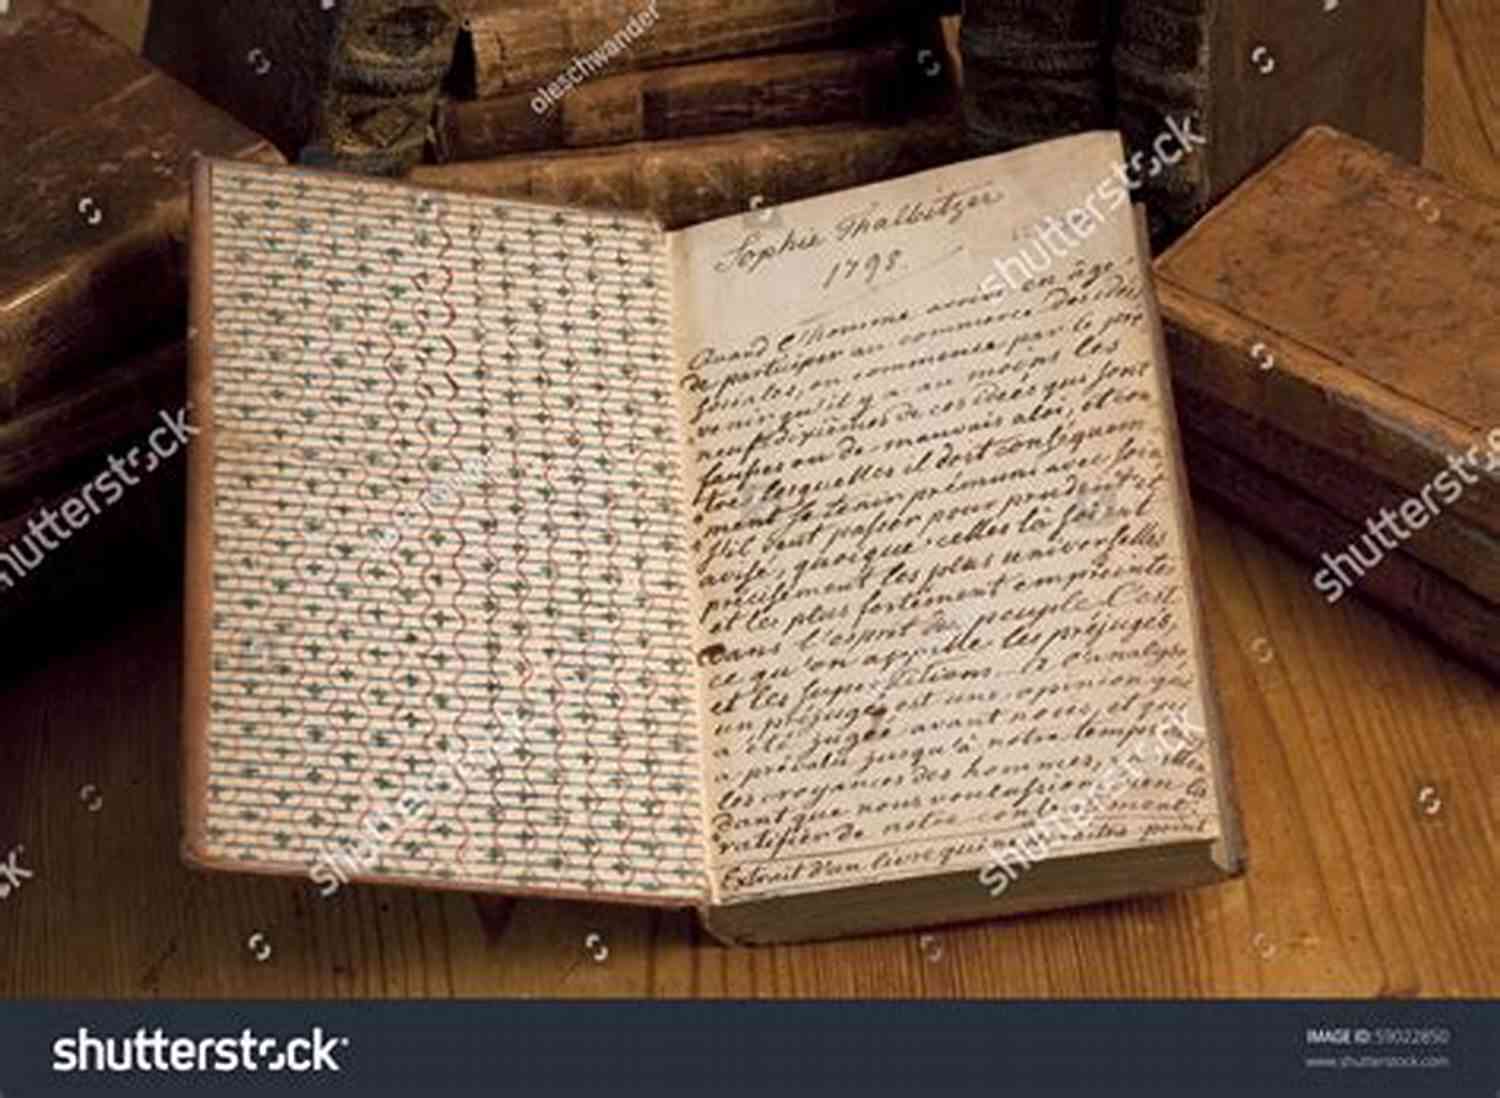 oleschwander
Sophie Thalbitzer
1798.
Quand l'homme arrive en âge
de participer au commerce des idées
sociales, on commence par le pré
venir qu'il y a au moins les
neuf dixièmes de ces idées qui sont
fausses ou de mauvais aloi, et con
tre lesquelles il doit conséquem
ment se tenir prémuni avec soin
s'il veut passer pour prudent et
avisé, quoique celles là soient
précisément les plus universelles
et les plus fortement empreintes
dans l'esprit du peuple. C'est
ce qu'on appelle les préjugés,
et les superstitions
un préjugé est une opinion qui
a été jugée avant nous et qui
a prévalu jusqu'à notre temps
les croyances des hommes,
dant que nous voulussions bien la
ratifier de notre consentement.
Extrait d'un livre qui point
shutterstock
shutterstock
shutterstock
shutterstock
shutterstock
shutterstock
shutterstock
IMAGE ID: 59022850
www.shutterstock.com